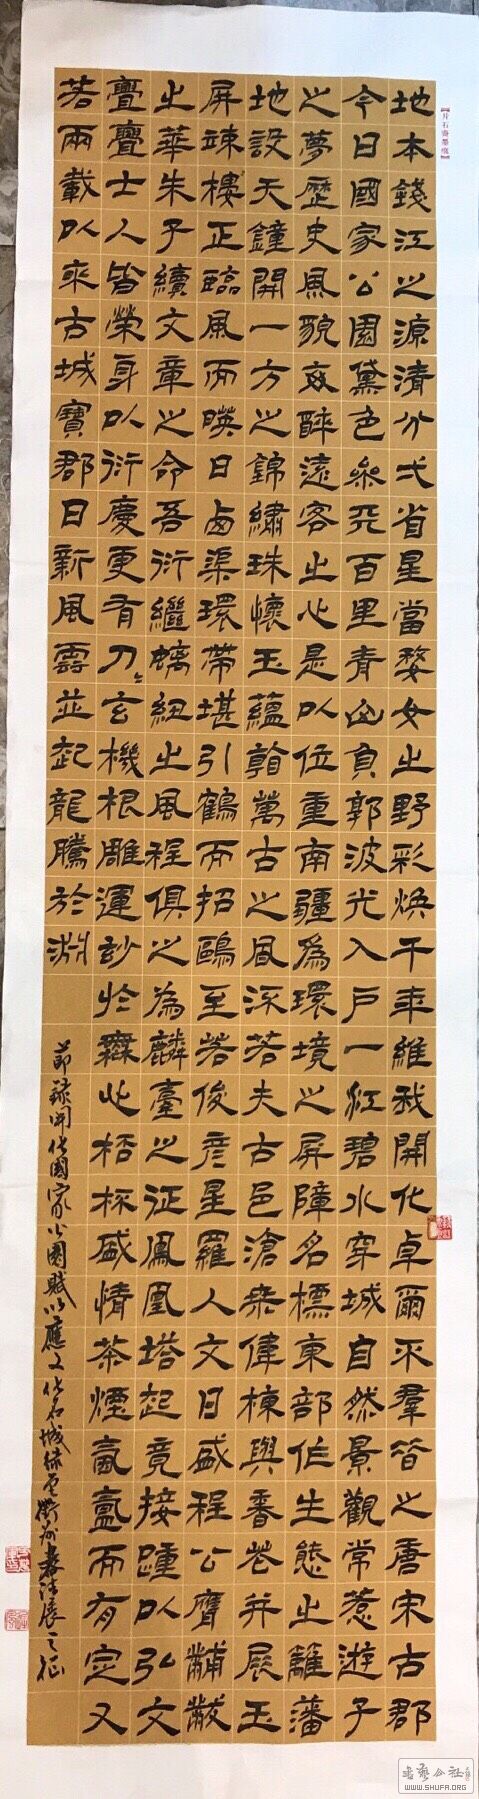 【片石齋墨緣】
地本錢江之源清分弌省星當婺女之野彩煥千年維我開化卓爾不羣昔之唐宋古郡
今日國家公園黛色參天百里青山負郭波光入戶一江碧水穿城自然景觀常惹遊子
之夢歷史風貌每醉遠客之心是以位重南疆為環境之屏障名標東部作生態之籬藩
地設天鐘開一方之錦繡珠懷玉蘊韜萬古之風流若夫古邑滄桑偉棟與香巷并展玉
屏竦樓正臨風而暎日鹵渠環帶堪引鶴而招鷗至若俊彦星羅人文日盛程公膺黼黻
之華朱子續文章之命吾衍繼螭紐之風程俱之為麟臺之征鳳凰塔起竟接踵以弘文
亹亹士人皆榮身以衍慶更有刀々玄機根雕運玅於無比桮杯盛情茶煙氤氳而有定又
若兩載以來古城寶郡日新風雲並起龍騰於淵
節録開化國家公園賦以應文化名城休衢州書法展之征
書藝公社
WWW.SHUFA.ORG